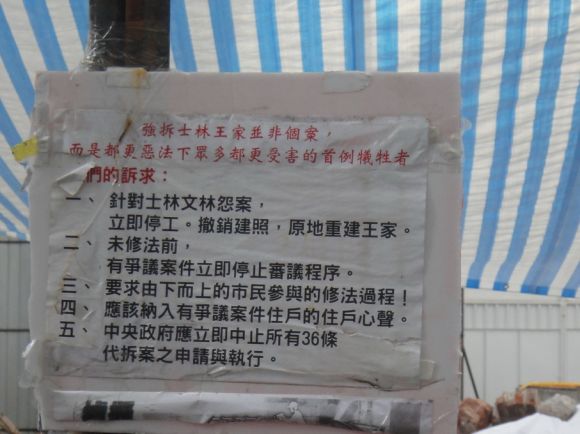 強拆士林王家並非個案，
而是都更惡法下眾多都更受害的首例犧牲者
們的訴求：
一、 針對士林文林怨案，
立即停工。撤銷建照，原地重建王家。
二、 未修法前，
有爭議案件立即停止審議程序。
三、 要求由下而上的市民參與的修法過程！
四、 應該納入有爭議案件住戶的住戶心聲。
五、 中央政府應立即中止所有36條
代拆案之申請與執行。